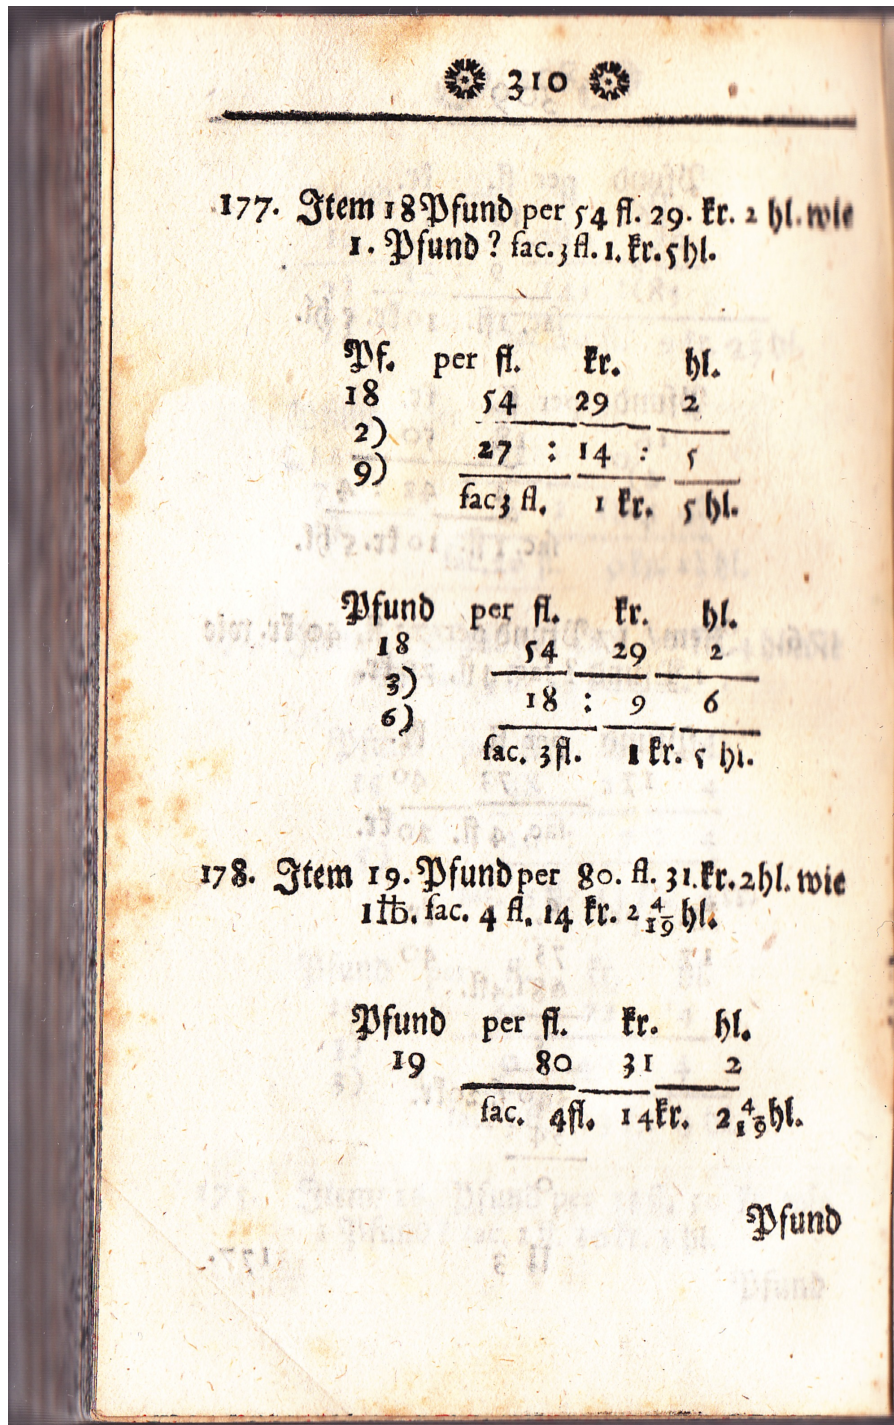 310
177. Item 18 Pfund per 54 fl. 29. kr. 2 hl. wie
1. Pfund? fac. 3 fl. 1. kr. 5 hl.
Pf. per fl. kr. hl.
18 54 29 2
2)
27 : 14 : 5
9)
fac 3 fl. 1 kr. 5 hl.
Pfund per fl. kr. hl.
18 54 29 2
3)
18 : 9 6
6)
fac. 3 fl. 1 kr. 5 hl.
178. Item 19. Pfund per 80. fl. 31. kr. 2 hl. wie
1 ℔. fac. 4 fl. 14 kr. 2 4/19 hl.
Pfund per fl. kr. hl.
19 80 31 2
fac. 4 fl. 14 kr. 2 4/19 hl.
Pfund